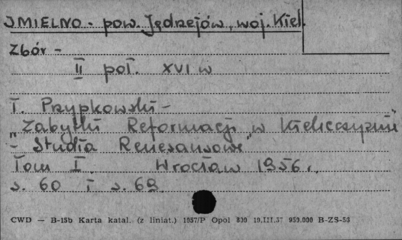 IMIELNO - pow. Jędrzejów, woj. Kiel.
Zbór -
II poł. XVI w
T. Przypkowski -
"Zabytki Reformacji w Kielecczyźnie
- Studia Renesansowe
Tom I. Wrocław 1956 r.
s. 60 i s. 69
CWD — B-15b Karta katal. (z liniat.) 1957/P Opol 810 19.III.57 950.000 B-ZS-50